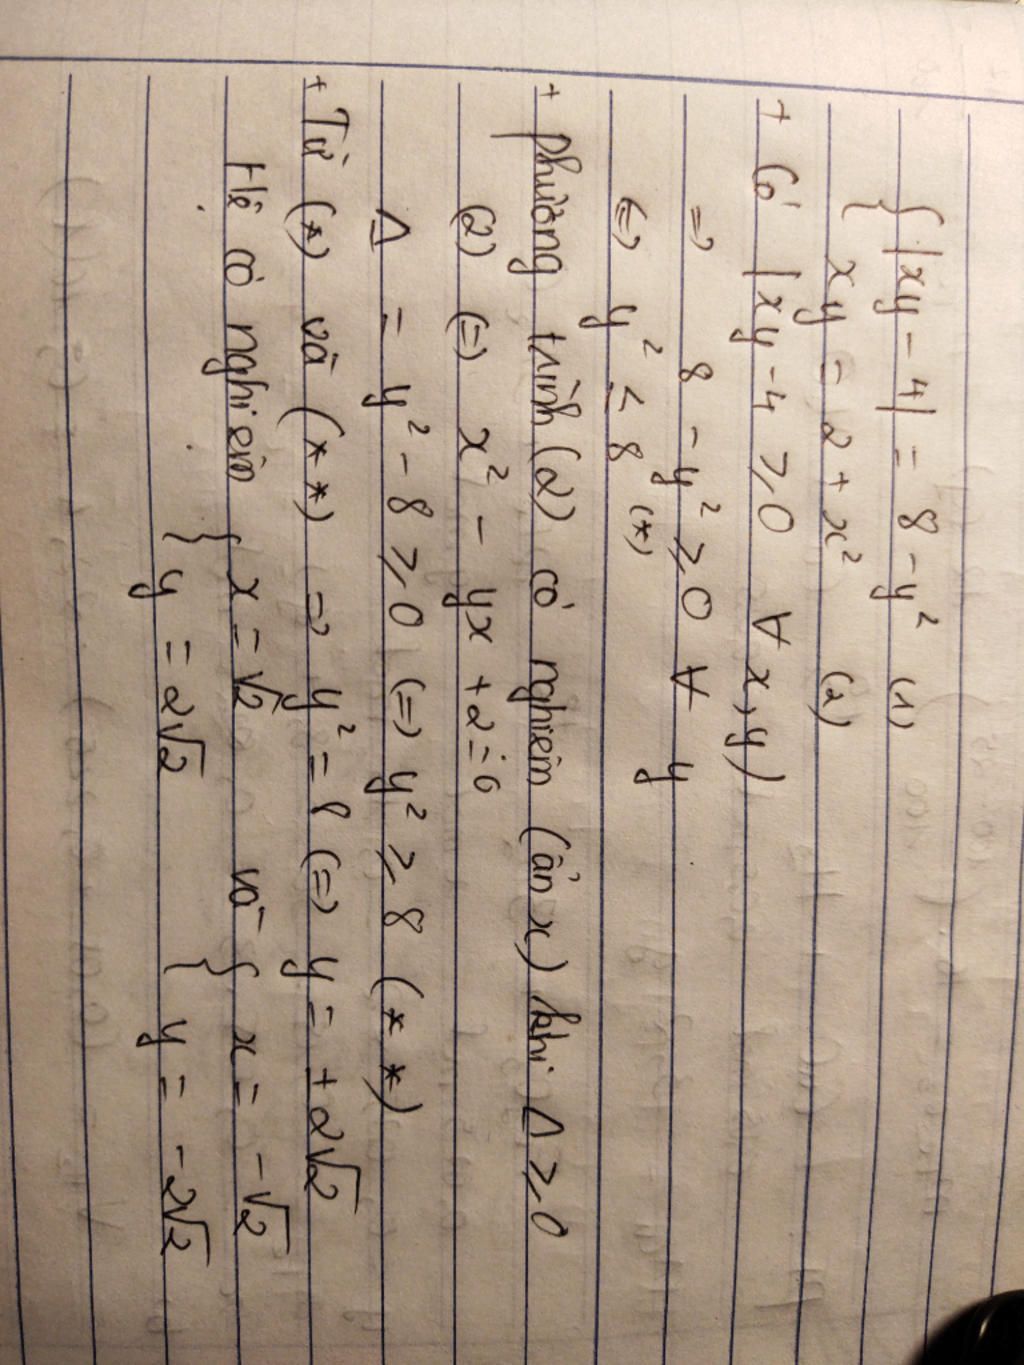 { |xy - 4| = 8 - y² (1)
xy = 2 + x² (2)
+ Có |xy - 4 ≥ 0 ∀ x, y)
=> 8 - y² ≥ 0 ∀ y
<=> y² ≤ 8 (*)
+ phương trình (2) có nghiệm (ẩn x) khi Δ ≥ 0
(2) <=> x² - yx + 2 = 0
Δ = y² - 8 ≥ 0 <=> y² ≥ 8 (**)
+ Từ (*) và (**) => y² = 8 <=> y = + 2√2
Hệ có nghiệm { x = √2 và { x = -√2
y = 2√2 y = -2√2